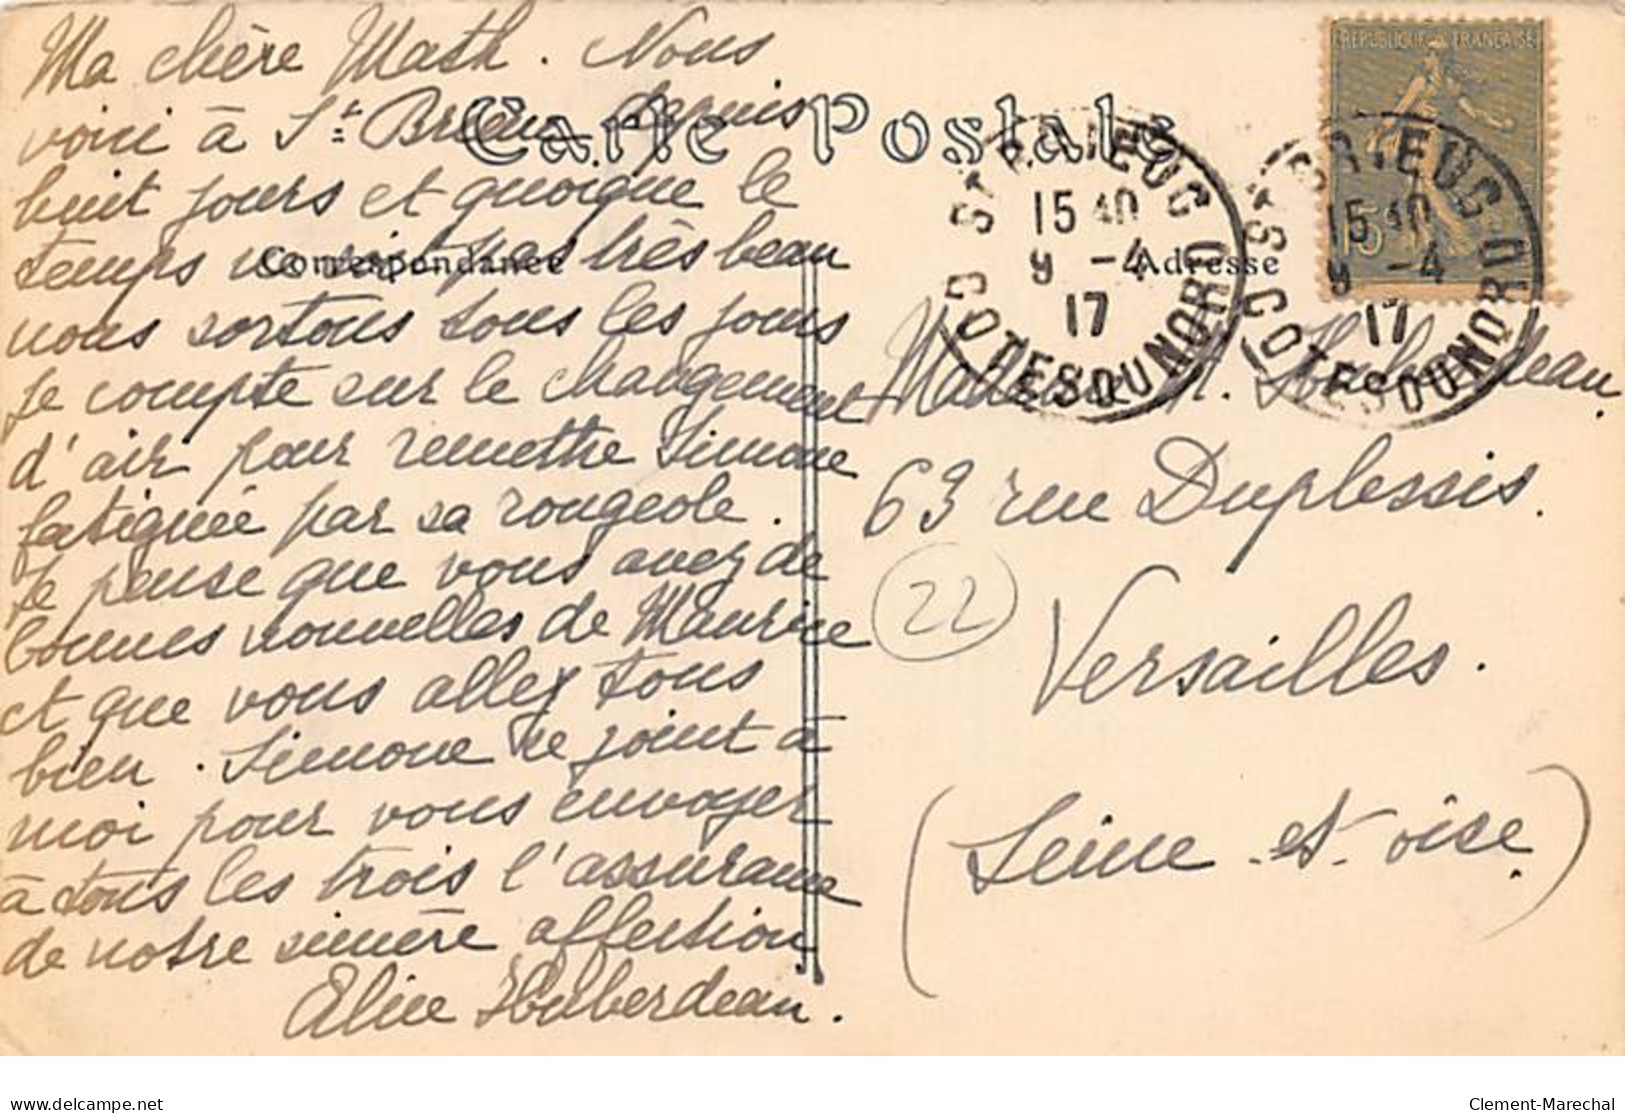 Ma chère Math. Nous
voici à St Brieuc depuis
huit jours et quoique le
temps ne soit pas très beau
nous sortons tous les jours
je compte sur le changement
d'air pour remettre Simone
fatiguée par sa rougeole.
Je pense que vous avez de
bonnes nouvelles de Maurice
et que vous allez tous
bien. Simone se joint à
moi pour vous envoyer
à tous les trois l'assurance
de notre sincère affection
Alice Huberdeau.
Carte Postale
Correspondance
Adresse
REPUBLIQUE FRANÇAISE
15
ST BRIEUC
15 40
9 -4
17
COTES DU NORD
ST BRIEUC
15 40
9 -4
17
COTES DU NORD
Madame Huberdeau.
63 rue Duplessis.
22
Versailles.
(Seine-et-oise)
delcampe.net
Clement-Marechal